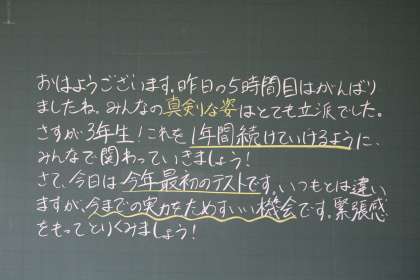 おはようございます。昨日の5時間目はがんばり
ましたね。みんなの真剣な姿はとても立派でした。
さすが3年生!これを1年間続けていけるように、
みんなで関わっていきましょう!
さて、今日は今年最初のテストです。いつもとは違い
ますが、今までの実力をためすいい機会です。緊張感
をもってとりくみましょう!